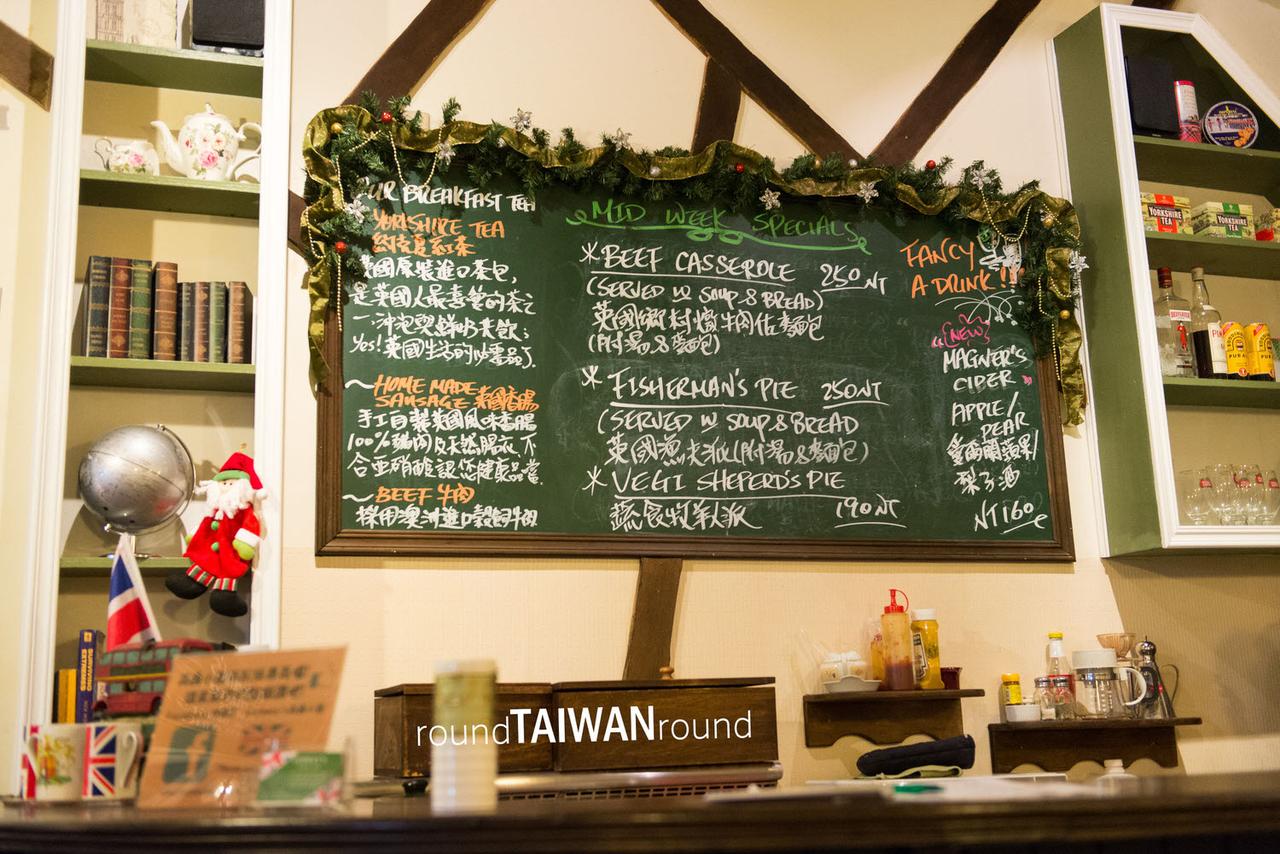 OUR BREAKFAST TEA
YORKSHIRE TEA
約克夏紅茶
英國原裝進口茶包,
是英國人最喜愛的茶之
一.沖泡與鮮奶來飲;
Yes! 英國生活的必需品了.
~HOME MADE
SAUSAGE 英國香腸
手工自製英國風味香腸
100%豬肉及天然腸衣,不
~BEEF 牛肉
採用澳洲進口穀飼牛肉
MID WEEK SPECIALS
*BEEF CASSEROLE 250NT
(SERVED W SOUP & BREAD)
英國鄉村燉牛肉佐麵包
(附湯&麵包)
*FISHERMAN'S PIE 250NT
(SERVED W SOUP & BREAD
英國漁夫派(附湯&麵包)
*VEGI SHEPERD'S PIE
蔬食牧羊派 190NT
FANCY
A DRINK!!
(NEW)
MAGNER'S
CIDER
APPLE/
PEAR
愛爾蘭蘋果/
梨子酒
NT160
YORKSHIRE
TEA
YORKSHIRE
TEA
BEEFEATER
PURA
SURVIVING
EXTREMES
roundTAIWANround